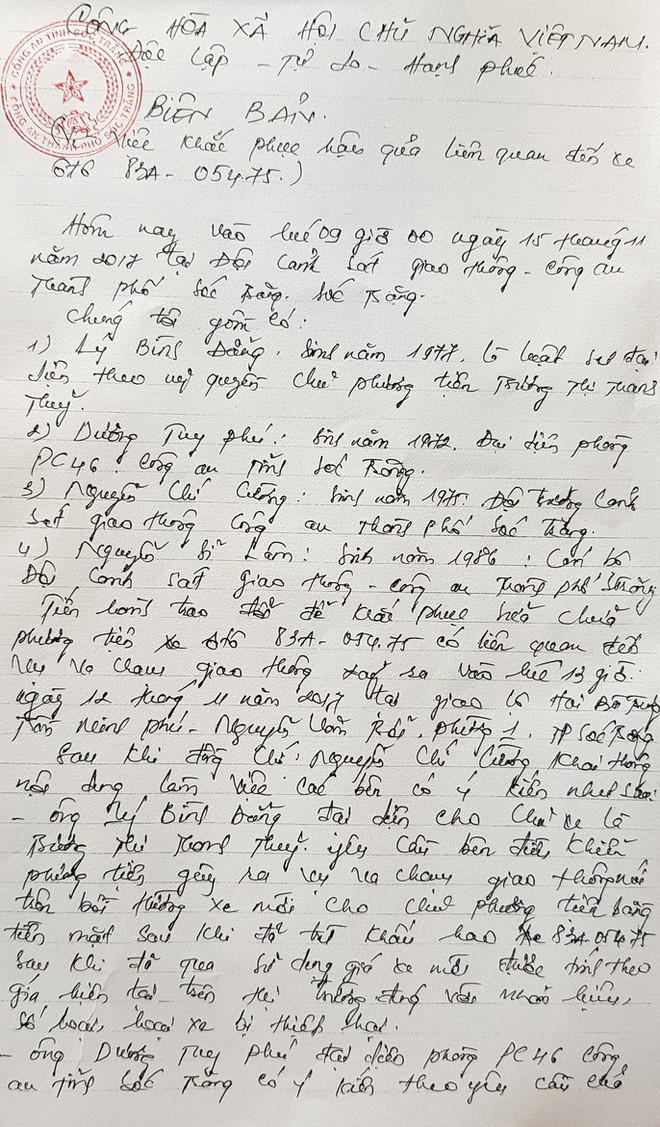 CỘNG HÒA XÃ HỘI CHỦ NGHĨA VIỆT NAM.
Độc Lập - Tự do - Hạnh phúc.
CÔNG AN TỈNH SÓC TRĂNG
CÔNG AN THÀNH PHỐ SÓC TRĂNG
BIÊN BẢN.
(Về việc khắc phục hậu quả liên quan đến xe
ôtô 83A-054.75.)
Hôm nay vào lúc 09 giờ 00 ngày 15 tháng 11
năm 2017 tại Đội Cảnh sát giao thông - Công an
Thành phố Sóc Trăng. Sóc Trăng.
Chúng tôi gồm có:
1) Lý Bình Đẳng. Sinh năm 1977. là luật sư đại
diện theo uỷ quyền chủ phương tiện Trương Thị Thanh
Thuỷ.
2) Dương Tuy Phú: Sinh năm 1972. Đại diện phòng
PC46. Công an Tỉnh Sóc Trăng.
3) Nguyễn Chí Cường: Sinh năm 1975. Đội trưởng Cảnh
sát giao thông Công an Thành phố Sóc Trăng.
4) Nguyễn Sĩ Lâm: Sinh năm 1986: Cán bộ
Đội Cảnh sát giao thông - Công an Thành phố S.Trăng
Tiến hành trao đổi để khắc phục sửa chữa
phương tiện xe ôtô 83A-054.75 có liên quan đến
vụ va chạm giao thông xảy ra vào lúc 13 giờ:
ngày 12 tháng 11 năm 2017 tại giao lộ Hai Bà Trưng
Trần Minh Phú - Nguyễn Văn Trỗi. Phường 1. TP Sóc Trăng
Sau khi đồng chí: Nguyễn Chí Cường khai thông
nội dung làm việc các bên có ý kiến như sau:
- Ông Lý Bình Đẳng đại diện cho chủ xe là
Trương Thị Thanh Thuỷ. yêu cầu bên điều khiển
phương tiện gây ra vụ va chạm giao thông nói
trên bồi thường xe mới cho chủ phương tiện bằng
tiền mặt sau khi đã trừ khấu hao xe 83A.05475
sau khi đã qua sử dụng giá xe mới được tính theo
giá hiện tại trên thị trường đúng với nhãn hiệu,
số loại, loại xe bị thiệt hại.
- Ông Dương Tuy Phú đại diện phòng PC46 Công
an tỉnh Sóc Trăng có ý kiến theo yêu cầu của